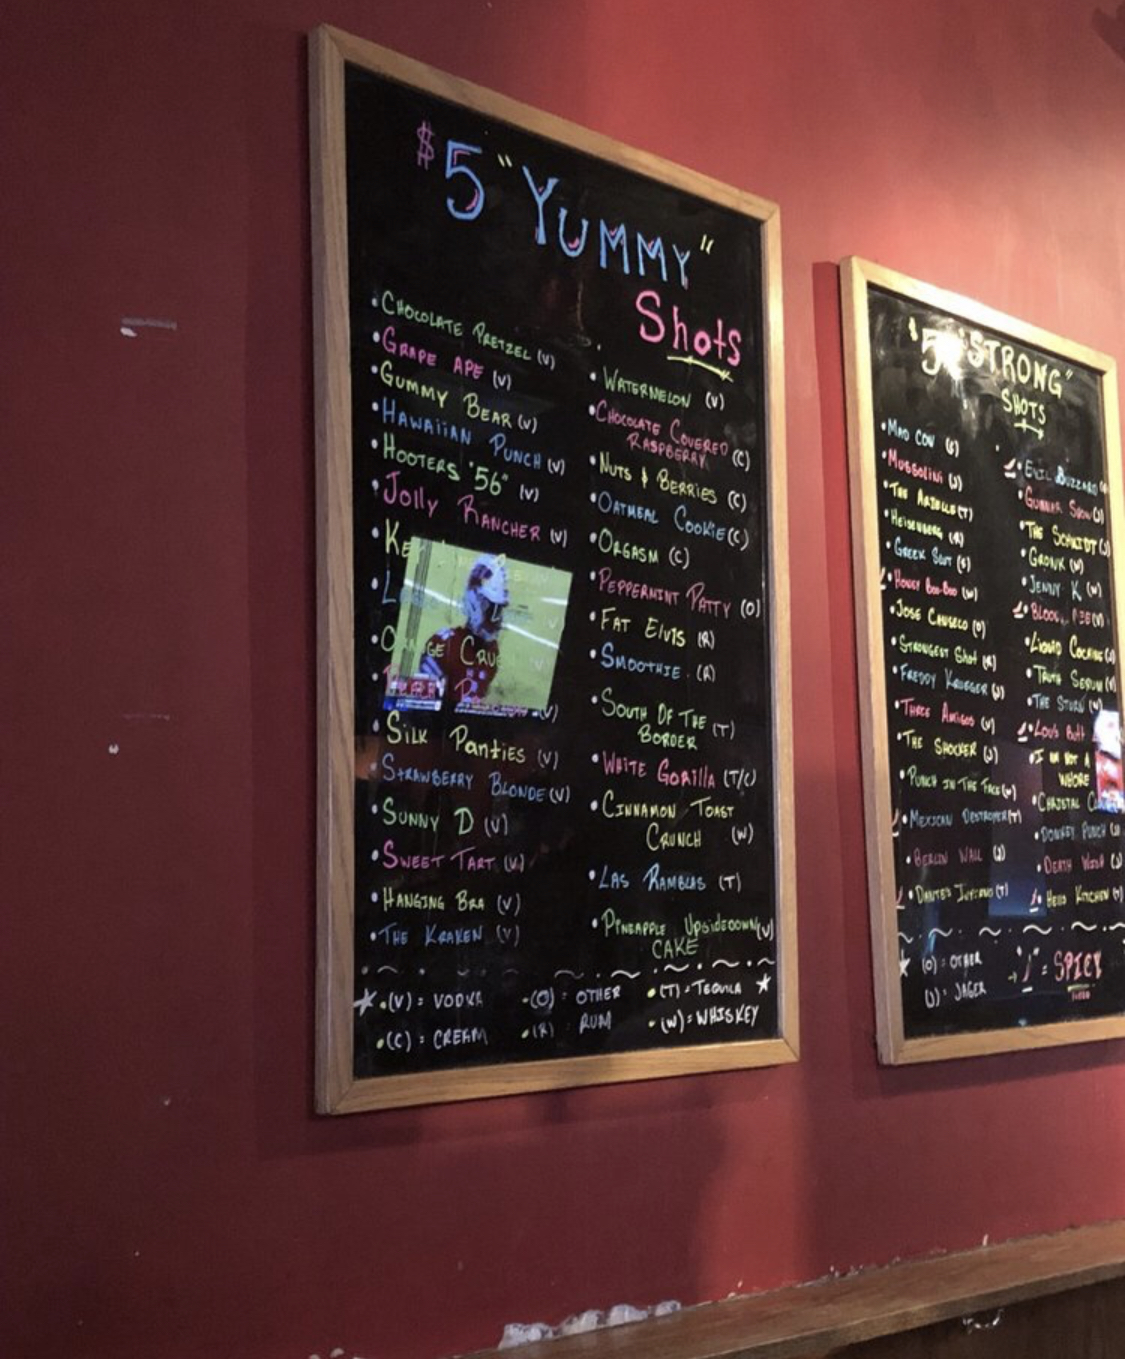 $5 "YUMMY"
Shots
• CHOCOLATE PRETZEL (V)
• GRAPE APE (V)
• GUMMY BEAR (V)
• HAWAiiAN PUNCH (V)
• HOOTERS "56" (V)
• Jolly RANCHER (V)
• SILK PANTIES (V)
• STRAWBERRY BLONDE (V)
• SUNNY D (V)
• SWEET TART (V)
• HANGING BRA (V)
• THE KRAKEN (V)
• WATERMELON (V)
• CHOCOLATE COVERED
RASPBERRY (C)
• NUTS & BERRIES (C)
• OATMEAL COOKIE (C)
• ORGASM (C)
• PEPPERMINT PATTY (O)
• FAT ELVIS (R)
• SMOOTHIE (R)
• SOUTH OF THE
BORDER (T)
• WHITE GORILLA (T/C)
• CINNAMON TOAST
CRUNCH (W)
• LAS RAMBLAS (T)
• PINEAPPLE UPSIDEDOWN (V)
CAKE
• (V) = VODKA • (O) = OTHER • (T) = TEQUILA
• (C) = CREAM • (R) = RUM • (W) = WHISKEY
$5 "STRONG"
SHOTS
• MAD COW
• MUSSOLINI (J)
• THE (T)
• HEISENBERG (R)
• GREEK
• HONEY BOO-BOO (W)
• JOSE CANSECO (O)
• STRONGEST SHOT (R)
• FREDDY KRUEGER (J)
• THREE AMIGOS (V)
• THE SHOCKER (J)
• PUNCH IN THE FACE (W)
• MEXICAN DESTROYER (T)
• BERLIN WALL (J)
• DANTE'S INFERNO (T)
• EVIL BUZZARD
• GUMMAR (J)
• THE SCHMIDT (J)
• GRONK (W)
• JENNY K (W)
• LIQUID COCAINE (J)
• TRUTH SERUM
• THE
• LOU'S BUTT
• I'M NOT A
WHORE
• CHRISTAL
• DONKEY PUNCH
• DEATH WISH (J)
• HELLS KITCHEN (T)
(O) = OTHER
(J) = JAGER
= SPICY